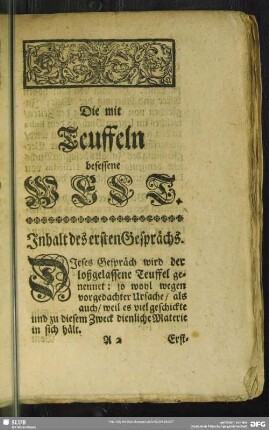 Die mit
Teuffeln
besessene
WELT.
Inhalt des ersten Gesprächs.
DIeses Gespräch wird der
loßgelassene Teuffel ge-
nennet: so wohl wegen
vorgedachter Ursache/ als
auch/ weil es viel geschickte
und zu diesem Zweck dienliche Materie
in sich hält.
A 2 Erst-
SLUB
DFG